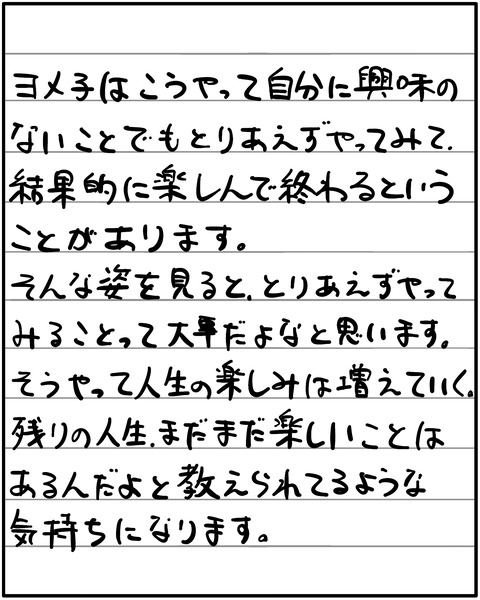 ヨメ子はこうやって自分に興味の
ないことでもとりあえずやってみて、
結果的に楽しんで終わるという
ことがあります。
そんな姿を見ると、とりあえずやって
みることって大事だよなと思います。
そうやって人生の楽しみは増えていく。
残りの人生、まだまだ楽しいことは
あるんだよと教えられてるような
気持ちになります。